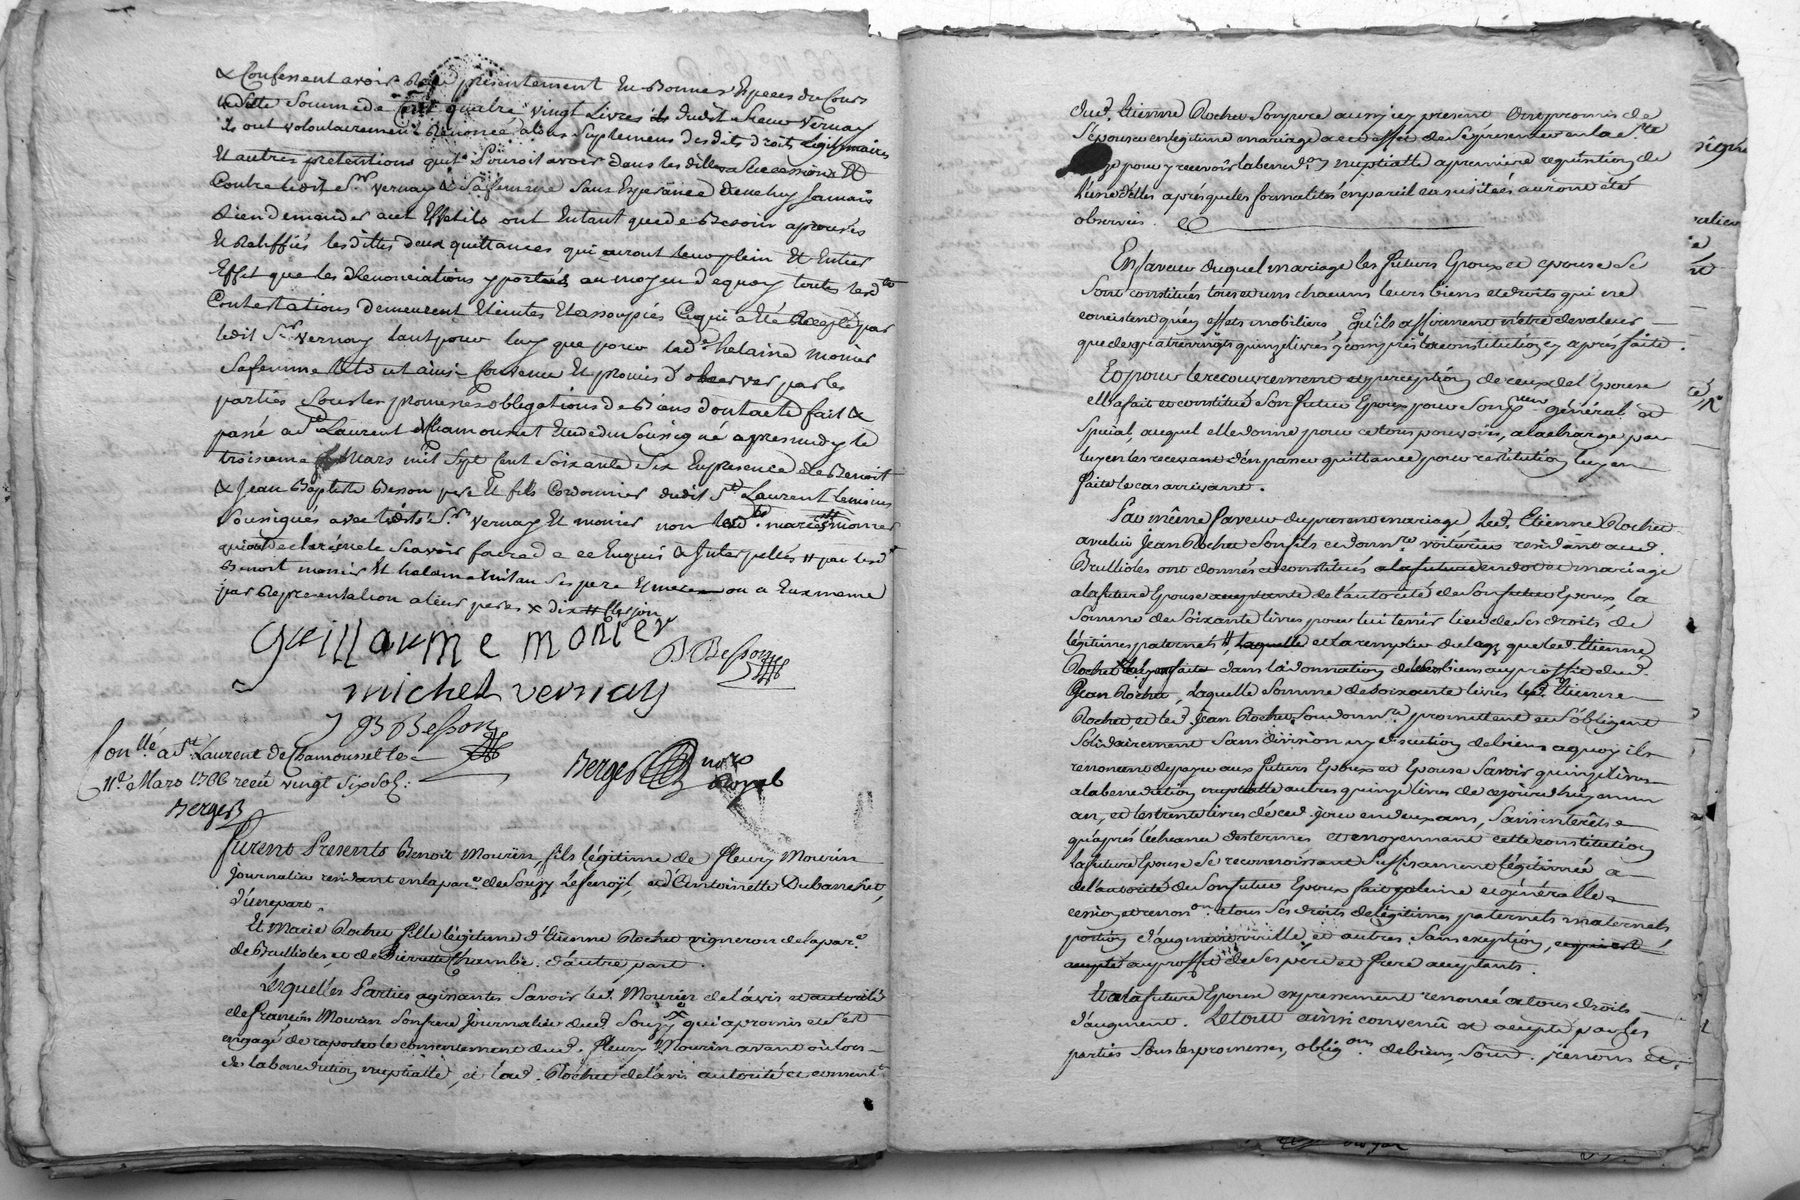 & Confessent avoir Reçu présentement En Bonnes Especes du Cours
laditte Somme de Cent quatre vingt Livres dudit Sieur Vernay
ils ont volontairement Renoncé a tous Suplemens desdits droits Legitimaires
Et autres pretentions quils Pouroit avoir dans lesdittes Successions Et
Contre ledit Sr Vernay & Sa femme Sans Esperance de neluy Jamais
Rien demander a cet Effet ils ont Entant que de Besoin aprouvés
Et Ratiffiés lesdittes deux quittances qui auront leur plein Et Entier
Effet que les Renonciations y portées au moyen de quoy toutes lesdtes
Contestations demeurent Eteintes Et assoupies Ce qui a Eté accepté par
ledit Sr Vernay tant pour luy que pour lade helaine Monier
Sa femme Le tout ainsi Convenu Et promis d'observer par les
parties Sous les promesses obligations de Biens dont acte fait &
passé a St Laurent de Chamousset Etude du Sousigné apres midy le
troisieme Mars mil Sept Cent Soixante Six En presence de Benoit
& Jean Baptiste Besson pere Et fils Cordonnier dudit St Laurent temoins
Sousignés avec lesdits Srs Vernay Et monier non lesdtes mariés monier
qui ont declaré ne le Scavoir faire de ce Enquis & Interpellés # par lesdt
Benoit monier Et helaine ses pere Et mere ou a Eux meme
par Representation a leur peres x dix # Clerjon
Guillaume monier
B Besson
michel vernay
J B Besson
Conllé a St Laurent de Chamousset le
11d Mars 1766 reçu vingt Six Sols
Berger
Berger nore Royal
Furent Presents Benoit Mourin, fils légitime de fleury Mourin
journalier residant en la pare de Souzy , et d'Antoinette Dubanchet,
d'une part.
Et Marie Rochet fille légitime d'Etienne Rochet vigneron de la pare
de Brullioles et de Pierrette Chambe. d'autre part.
Lesquelles Parties agissantes Savoir led. Mourin de l'avis et autorité
de françois Mourin Son frere journalier dud. Souzy qui a promis et s'est
engagé de raporter le consentement dud. fleury Mourin avant ou lors
de la benediction nuptialle, et lad. Rochet de l'avis autorité et consentt
dud. Etienne Rochet Son pere aussy icy present Ont promis de
S'épouser en legitime mariage a cet effet de Se présenter en la Ste
Eglise pour y recevoir la bened.on nuptialle a premiere requisition de
l'une d'elles après que les formalités en pareil cas usitées auront été
observées.
En faveur duquel mariage les futurs Epoux et epouse Se
Sont constitués tous et uns chacuns leurs biens et droits qui ne
consistent qu'en effets mobiliers, qu'ils affirment n'être de valeur
que de quatre vingt quinze livres, y compris la constitution cy après faite.
Et pour le recouvrement et perception de ceux de l'Epouse
elle a fait et constitué Son futur Epoux pour Son procureur général et
Special, auquel elle donne pour ce tous pouvoirs, a la charge par
luy en les recevant d'en passer quittance pour restitution luy en
faite le cas arrivant.
En même faveur du present mariage, Led. Etienne Rochet
avec luy Jean Rochet Son fils et donn.re voiturier residant aud.
Brullioles ont donnés et constitués a la future en dot et mariage
a la future Epouse acceptante de l'autorité de Son futur Epoux, la
Somme de Soixante livres pour lui tenir lieu de Ses droits de
légitimes paternels # laquelle et la remplir du legs que led. Etienne
Rochet luy a faite dans la donnation de Ses biens au profit dud.
Jean Rochet, Laquelle Somme de Soixante livres led. Etienne
Rochet, et led. Jean Rochet, Son donn.re promettent et S'obligent
Solidairement Sans division ny discution de biens a quoy ils
renoncent de payer aux futurs Epoux et Epouse Savoir quinze livres
a la benediction nuptialle autres quinze livres de ce jourd'huy en un
an, et les trente livres de ced. jour en deux ans, Sans interêts
qu'après l'echeance des termes et moyennant cette constitution
la future Epouse Se reconnoissant Suffisament légitimée a
de l'autorité de Son futur Epoux fait plaine et générale
cession et renon.on a tous Ses droits de légitimes paternels maternels
portion d'augment virille et autres, Sans exeption,
au profit de Ses pere et frere acceptants.
Et a la future Epouse expressement renoncé a tous droits
d'augment. Le tout ainsi convenu et accepté par les
parties Sous les promesses, oblig.ons de biens, Soum. renons et.